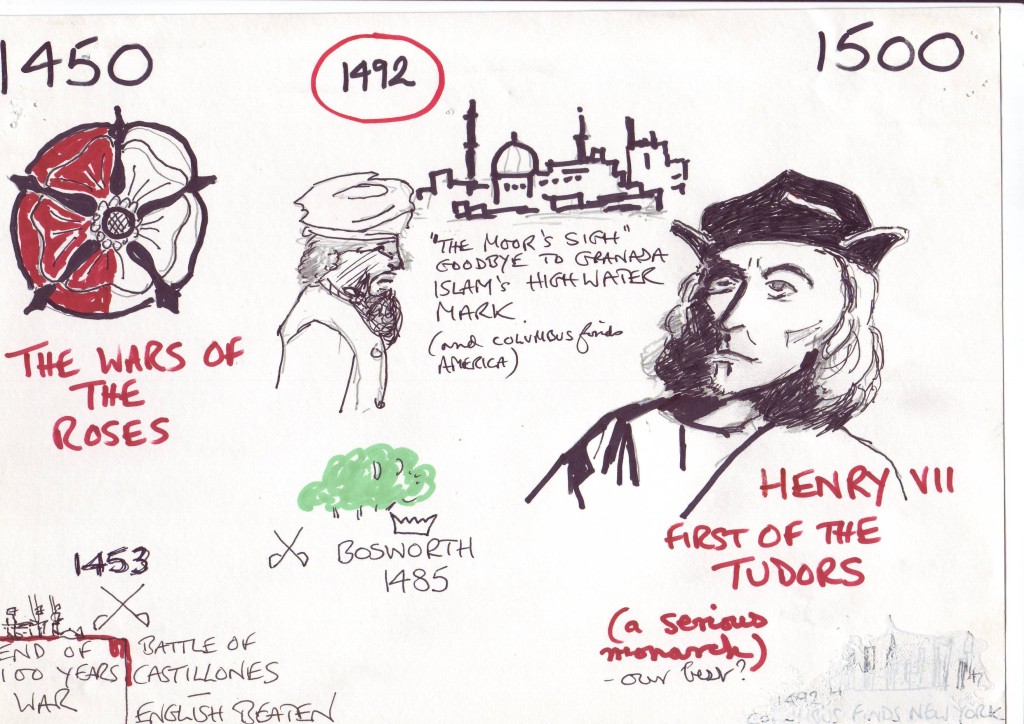 1450
1492
1500
"THE MOOR'S SIGH"
GOODBYE TO GRANADA
ISLAM'S HIGHWATER
MARK.
(and COLUMBUS finds
AMERICA)
THE WARS OF
THE
ROSES
HENRY VII
FIRST OF THE
TUDORS
(a serious
monarch)
- our best?
BOSWORTH
1485
1453
END OF
100 YEARS
WAR
BATTLE OF
CASTILLONES
–
ENGLISH BEATEN
1492
FINDS NEW YORK